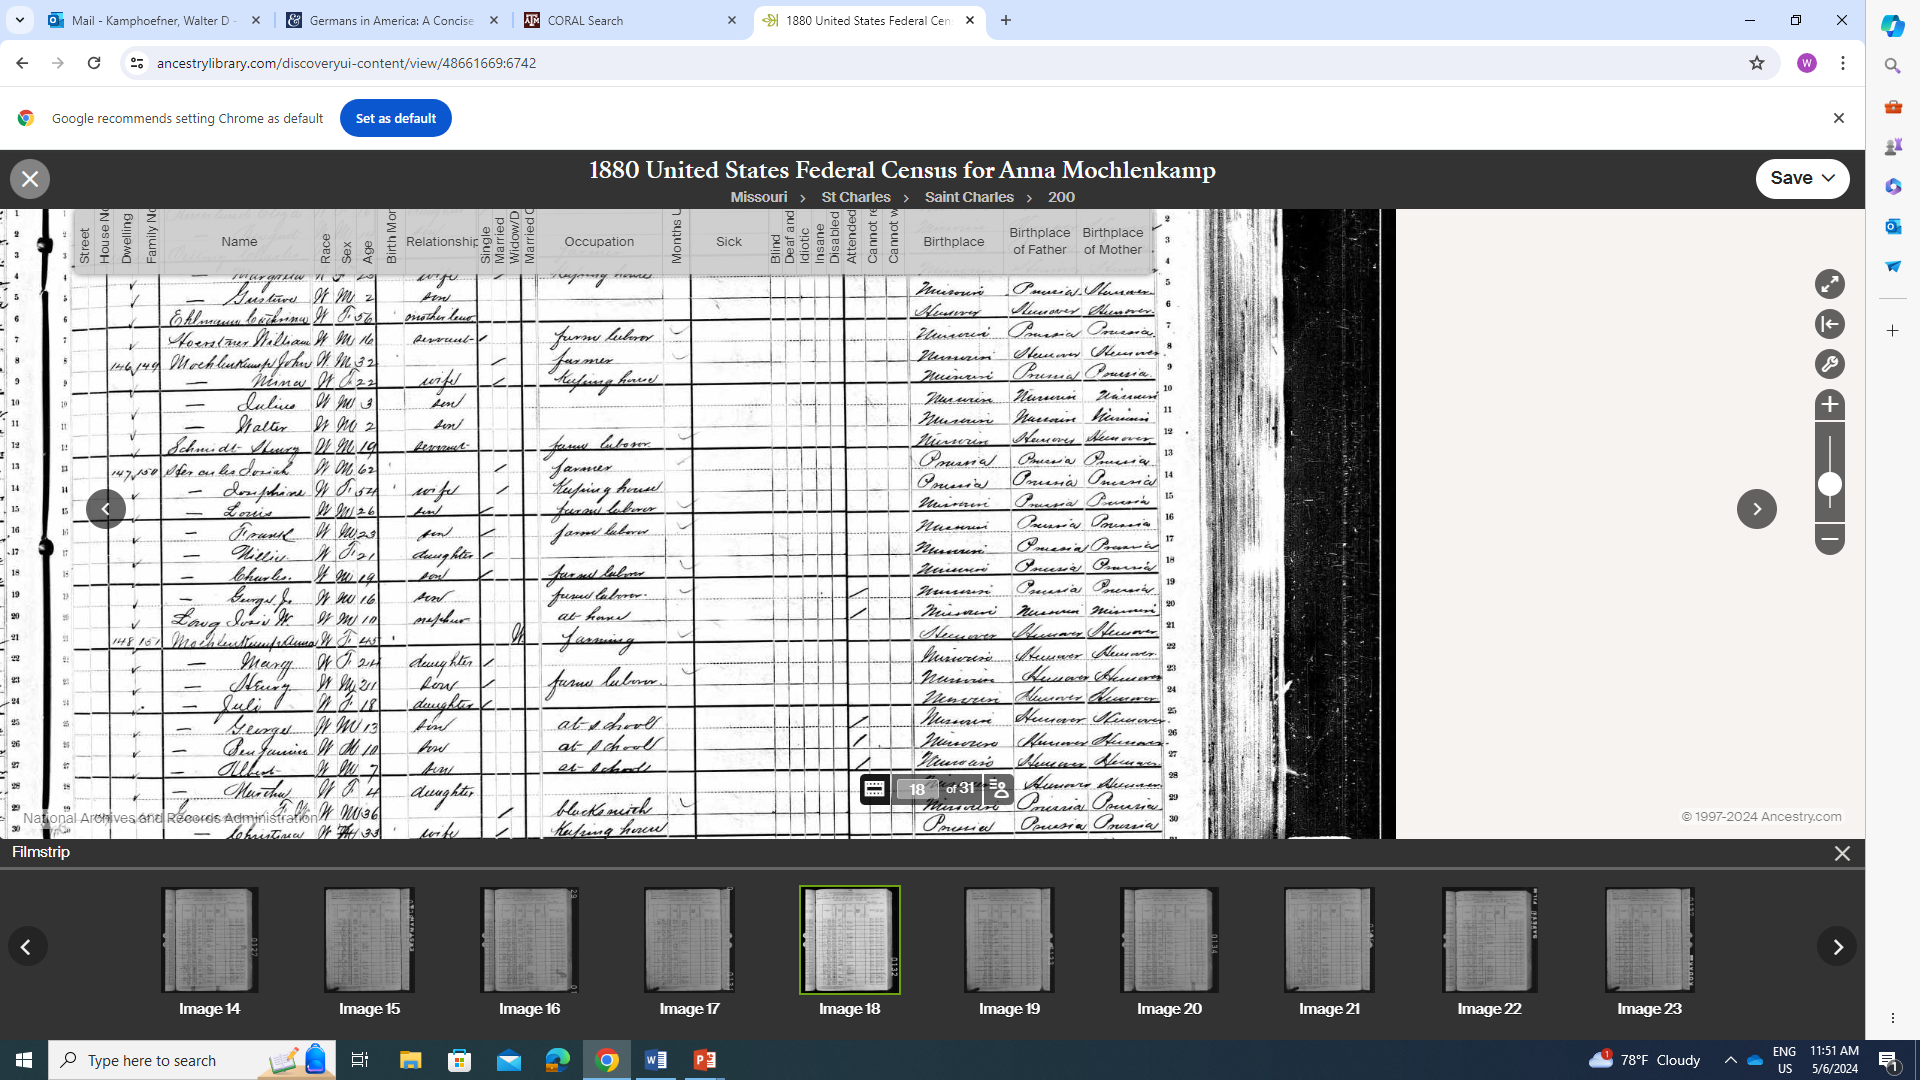 Mail - Kamphoefner, Walter D -
Germans in America: A Concise
CORAL Search
1880 United States Federal Cen
ancestrylibrary.com/discoveryui-content/view/48661669:6742
W
Google recommends setting Chrome as default
Set as default
1880 United States Federal Census for Anna Mochlenkamp
Missouri > St Charles > Saint Charles > 200
Save
Street House N Dwelling Family No Name Race Sex Age Birth Mon Relationship Single Married Widow/D Married Occupation Months U Sick Blind Deaf and Idiotic Insane Disabled Attended Cannot re Cannot w Birthplace Birthplace of Father Birthplace of Mother
4 — W F wife Keeping house
5 — Gustave W M 2 son Missouri Prussia Hanover
6 Ehlmann W F 56 Hanover Hanover Hanover
7 William W M 16 servant farm labor Missouri Prussia Prussia
8 146 149 Mochlenkamp John W M 32 farmer Missouri Hanover Hanover
9 — Mina W F 22 wife Keeping house Missouri Prussia Prussia
10 — Julius W M 3 son Missouri Missouri Missouri
11 — Walter W M 2 son Missouri Missouri Missouri
12 Schmidt Henry W M 19 servant farm labor Missouri Hanover Hanover
13 147 150 Josiah W M 62 farmer Prussia Prussia Prussia
14 — Josephine W F 54 wife Keeping house Prussia Prussia Prussia
15 — Louis W M 26 son farm labor Missouri Prussia Prussia
16 — Frank W M 23 son farm labor Missouri Prussia Prussia
17 — Millie W F 21 daughter Missouri Prussia Prussia
18 — Charles W M 19 son farm labor Missouri Prussia Prussia
19 — George Jr W M 16 son farm labor Missouri Prussia Prussia
20 Long W. W M 10 nephew at home Missouri Missouri Missouri
21 148 151 Mochlenkamp Anna W F 45 W farming Hanover Hanover Hanover
22 — Mary W F 24 daughter Missouri Hanover Hanover
23 — Henry W M 21 son farm labor Missouri Hanover Hanover
24 — Juli W F 18 daughter Missouri Hanover Hanover
25 — George W M 13 son at school Missouri Hanover Hanover
26 — Benjamin W M 10 son at school Missouri Hanover Hanover
27 — Albert W M 7 son at school Missouri Hanover Hanover
28 — Martha W F 4 daughter Hanover Hanover
29 W M 36 blacksmith Missouri Prussia Prussia
30 — Christina W F 33 wife Keeping house Prussia Prussia Prussia
18 of 31
National Archives and Records Administration
© 1997-2024 Ancestry.com
Filmstrip
Image 14 Image 15 Image 16 Image 17 Image 18 Image 19 Image 20 Image 21 Image 22 Image 23
Type here to search
1
78°F Cloudy
ENG
US
11:51 AM
5/6/2024
1